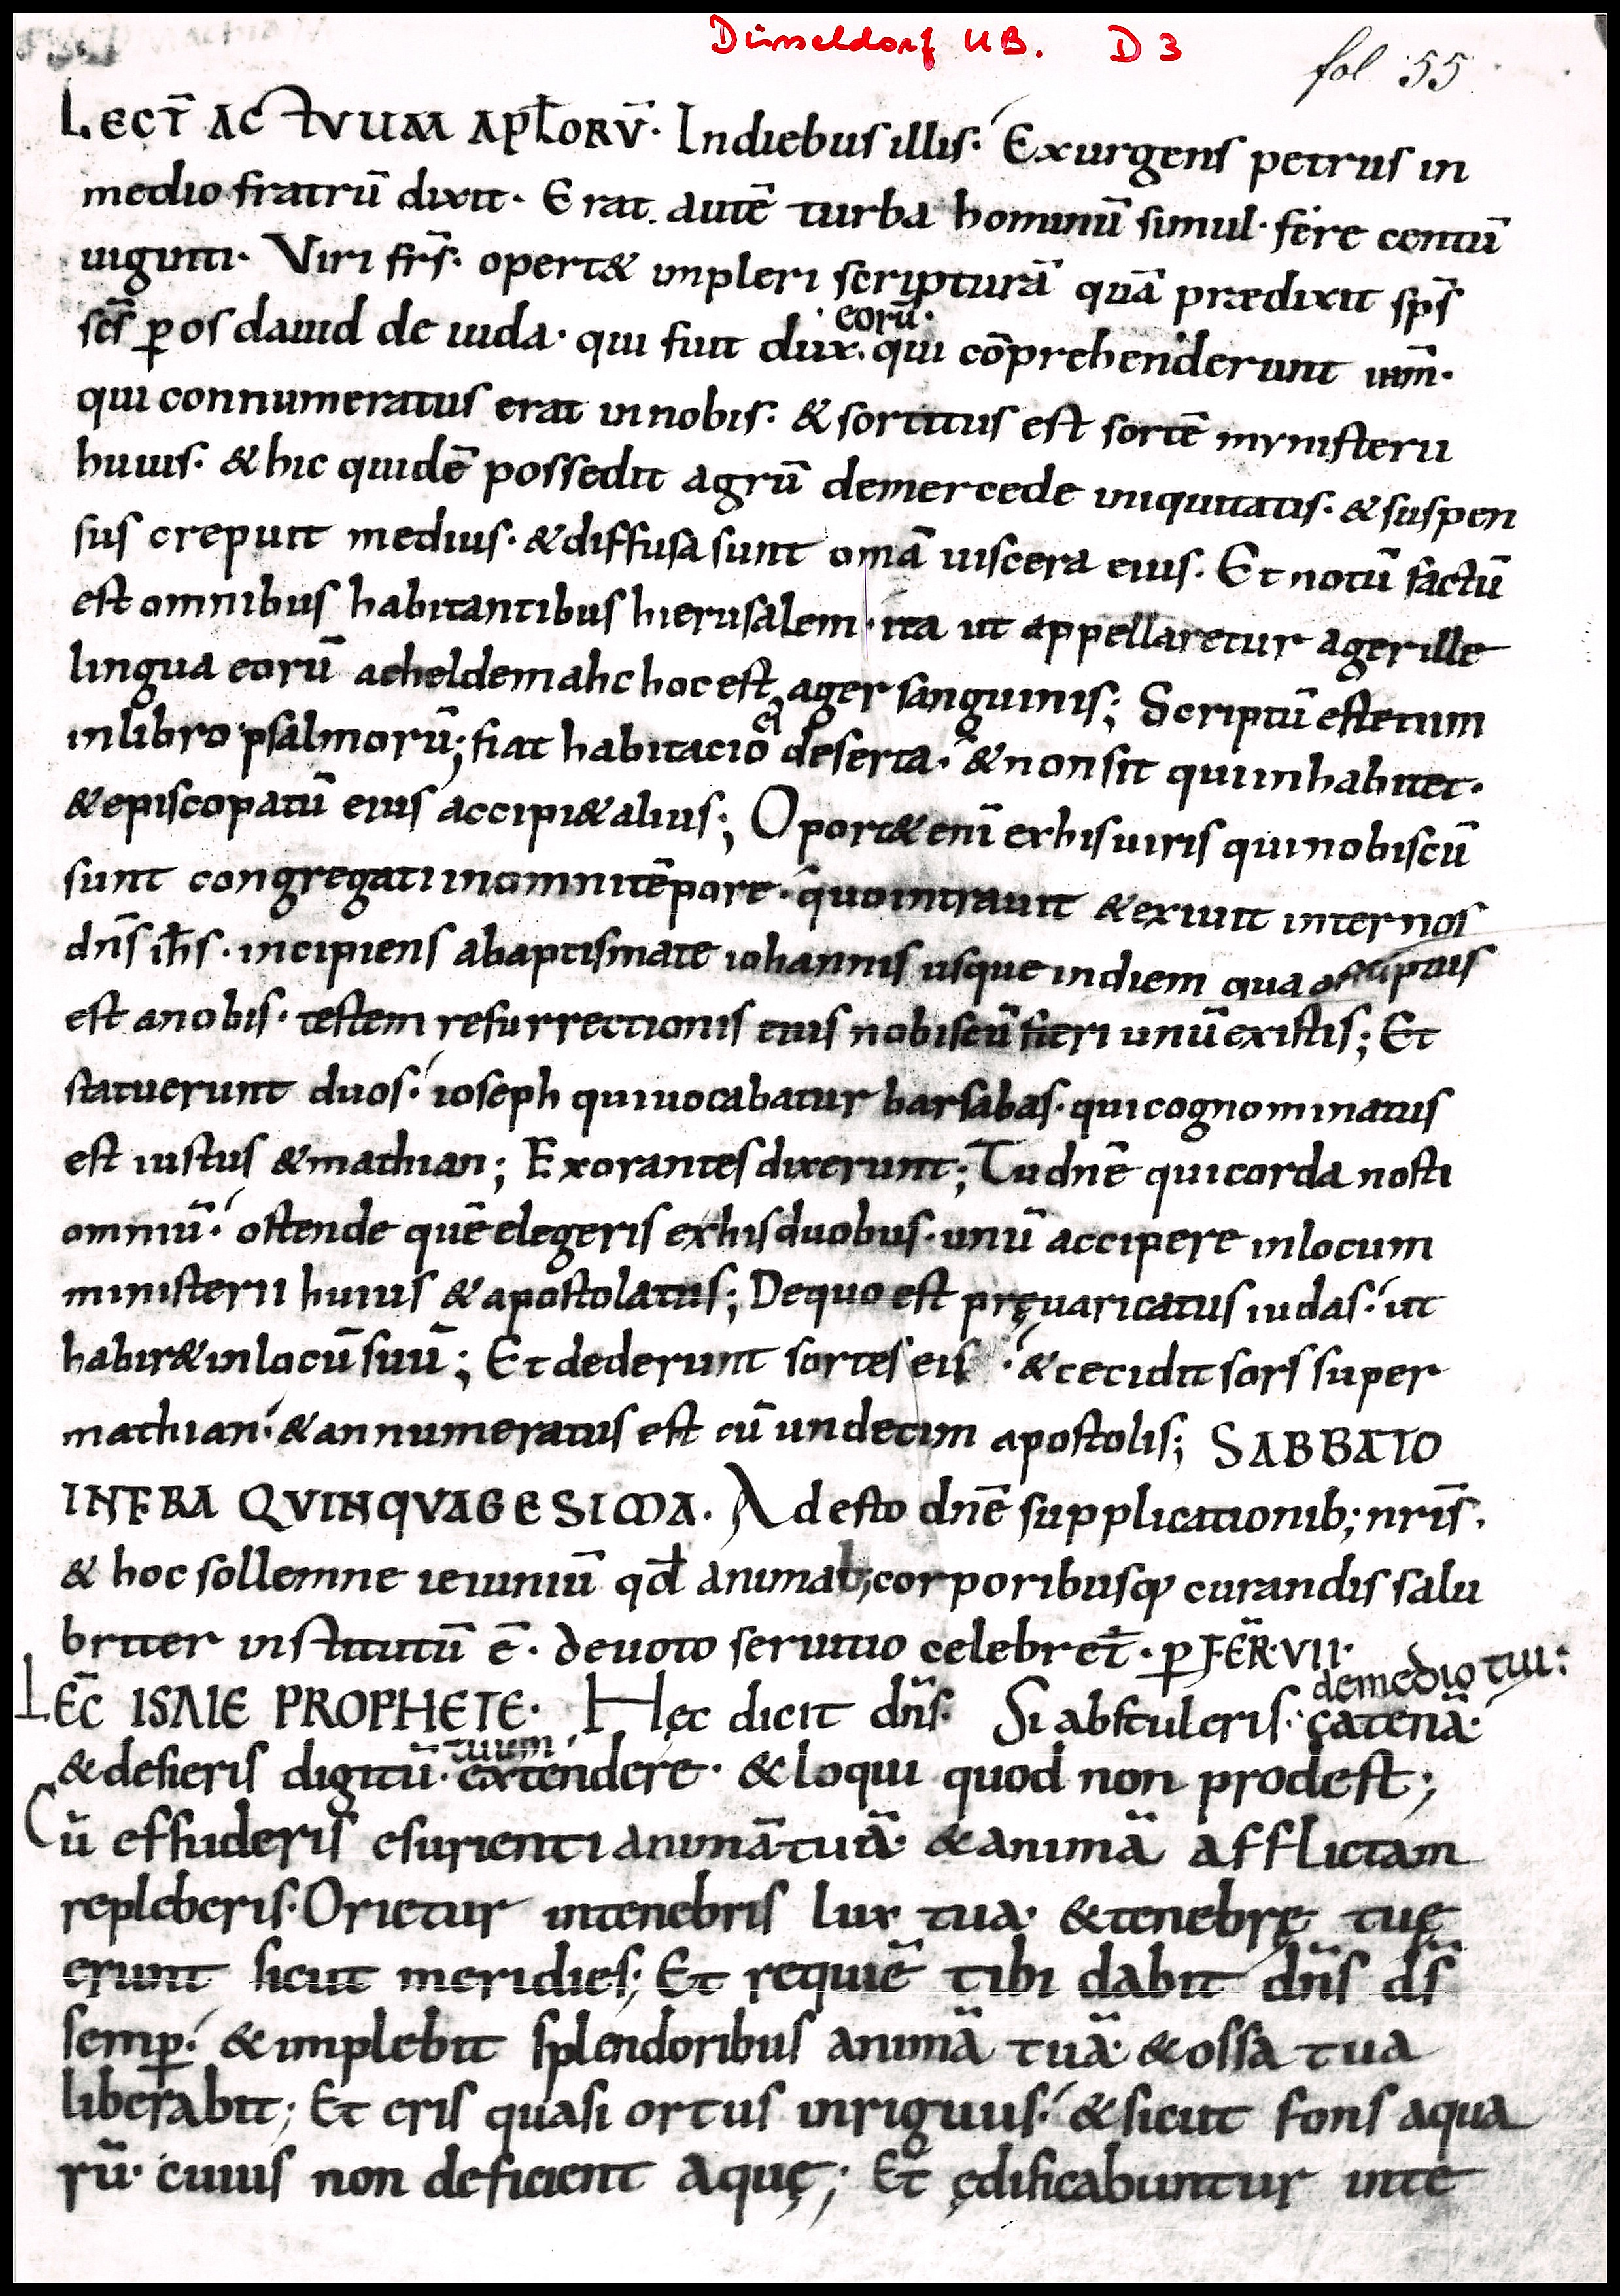 Düsseldorf UB. D 3
fol 55
LECT̄ ACTVUM APL̄ORV̄· Indiebus illis· Exurgens petrus in
medio fratrū dixit· Erat autē turba hominū simul· fere centū
uiginti· Viri fr̄s· oport& impleri scripturā quā prædixit sp̄s
sc̄s ꝑ os dauid de iuda· qui fuit dux· qui cōprehenderunt ihm̄·
eorū·
qui connumeratus erat in nobis· & sortitus est sortē mynisterii
huius· & hic quidē possedit agrū demercede iniquitatis· & suspen
sus crepuit medius· & diffusa sunt omā uiscera eius· Et notū factū
est omnibus habitantibus hierusalem· ita ut appellaretur ager ille
lingua eorū acheldemahc hoc est ager sanguinis; Scriptū est enim
in libro psalmorū; fiat habitacio deserta· & non sit qui inhabitet·
ei
& episcopatū eius accipi& alius; Oport& enī exhis uiris qui nobiscū
sunt congregati inomni tēpore· quo intrauit & exiuit inter nos
dn̄s ih̄s· incipiens abaptismate iohannis usque indiem qua
est anobis· testem resurrectionis eius nobiscū fieri unū existis; Et
statuerunt duos· ioseph qui uocabatur barsabas· qui cognominatus
est iustus & mathian; Exorantes dixerunt; Tu dn̄e qui corda nosti
omniū· ostende quē elegeris exhis duobus· unū accipere inlocum
ministerii huius & apostolatus; Dequo est pręuaricatus iudas· ut
habir& inlocū suū; Et dederunt sortes eis· & cecidit sors super
mathian· & annumeratus est cū undecim apostolis; SABBATO
INFRA QVINQVAGESIMA. Adesto dn̄e supplicationib; nr̄is·
& hoc sollemne ieiuniū qđ animab; corporibusq; curandis salu
briter institutū ē· deuoto seruitio celebret̄· ꝑ FER̄·VII·
demedio tui:
LEC̄ ISAIE PROPHETE· Hęc dicit dn̄s· Si abstuleris· catenā·
tuum
& desieris digitū· extendere· & loqui quod non prodest;
Cū effuderis esurienti animā tuā· & animā afflictam
repleberis· Orietur intenebris lux tua· & tenebrę tuę
erunt sicut meridies; Et requiē tibi dabit dn̄s ds̄
semꝑ· & implebit splendoribus animā tuā· & ossa tua
liberabit; Et eris quasi ortus inriguus· & sicut fons aqua
rū· cuius non deficient aquę; Et ędificabuntur inte